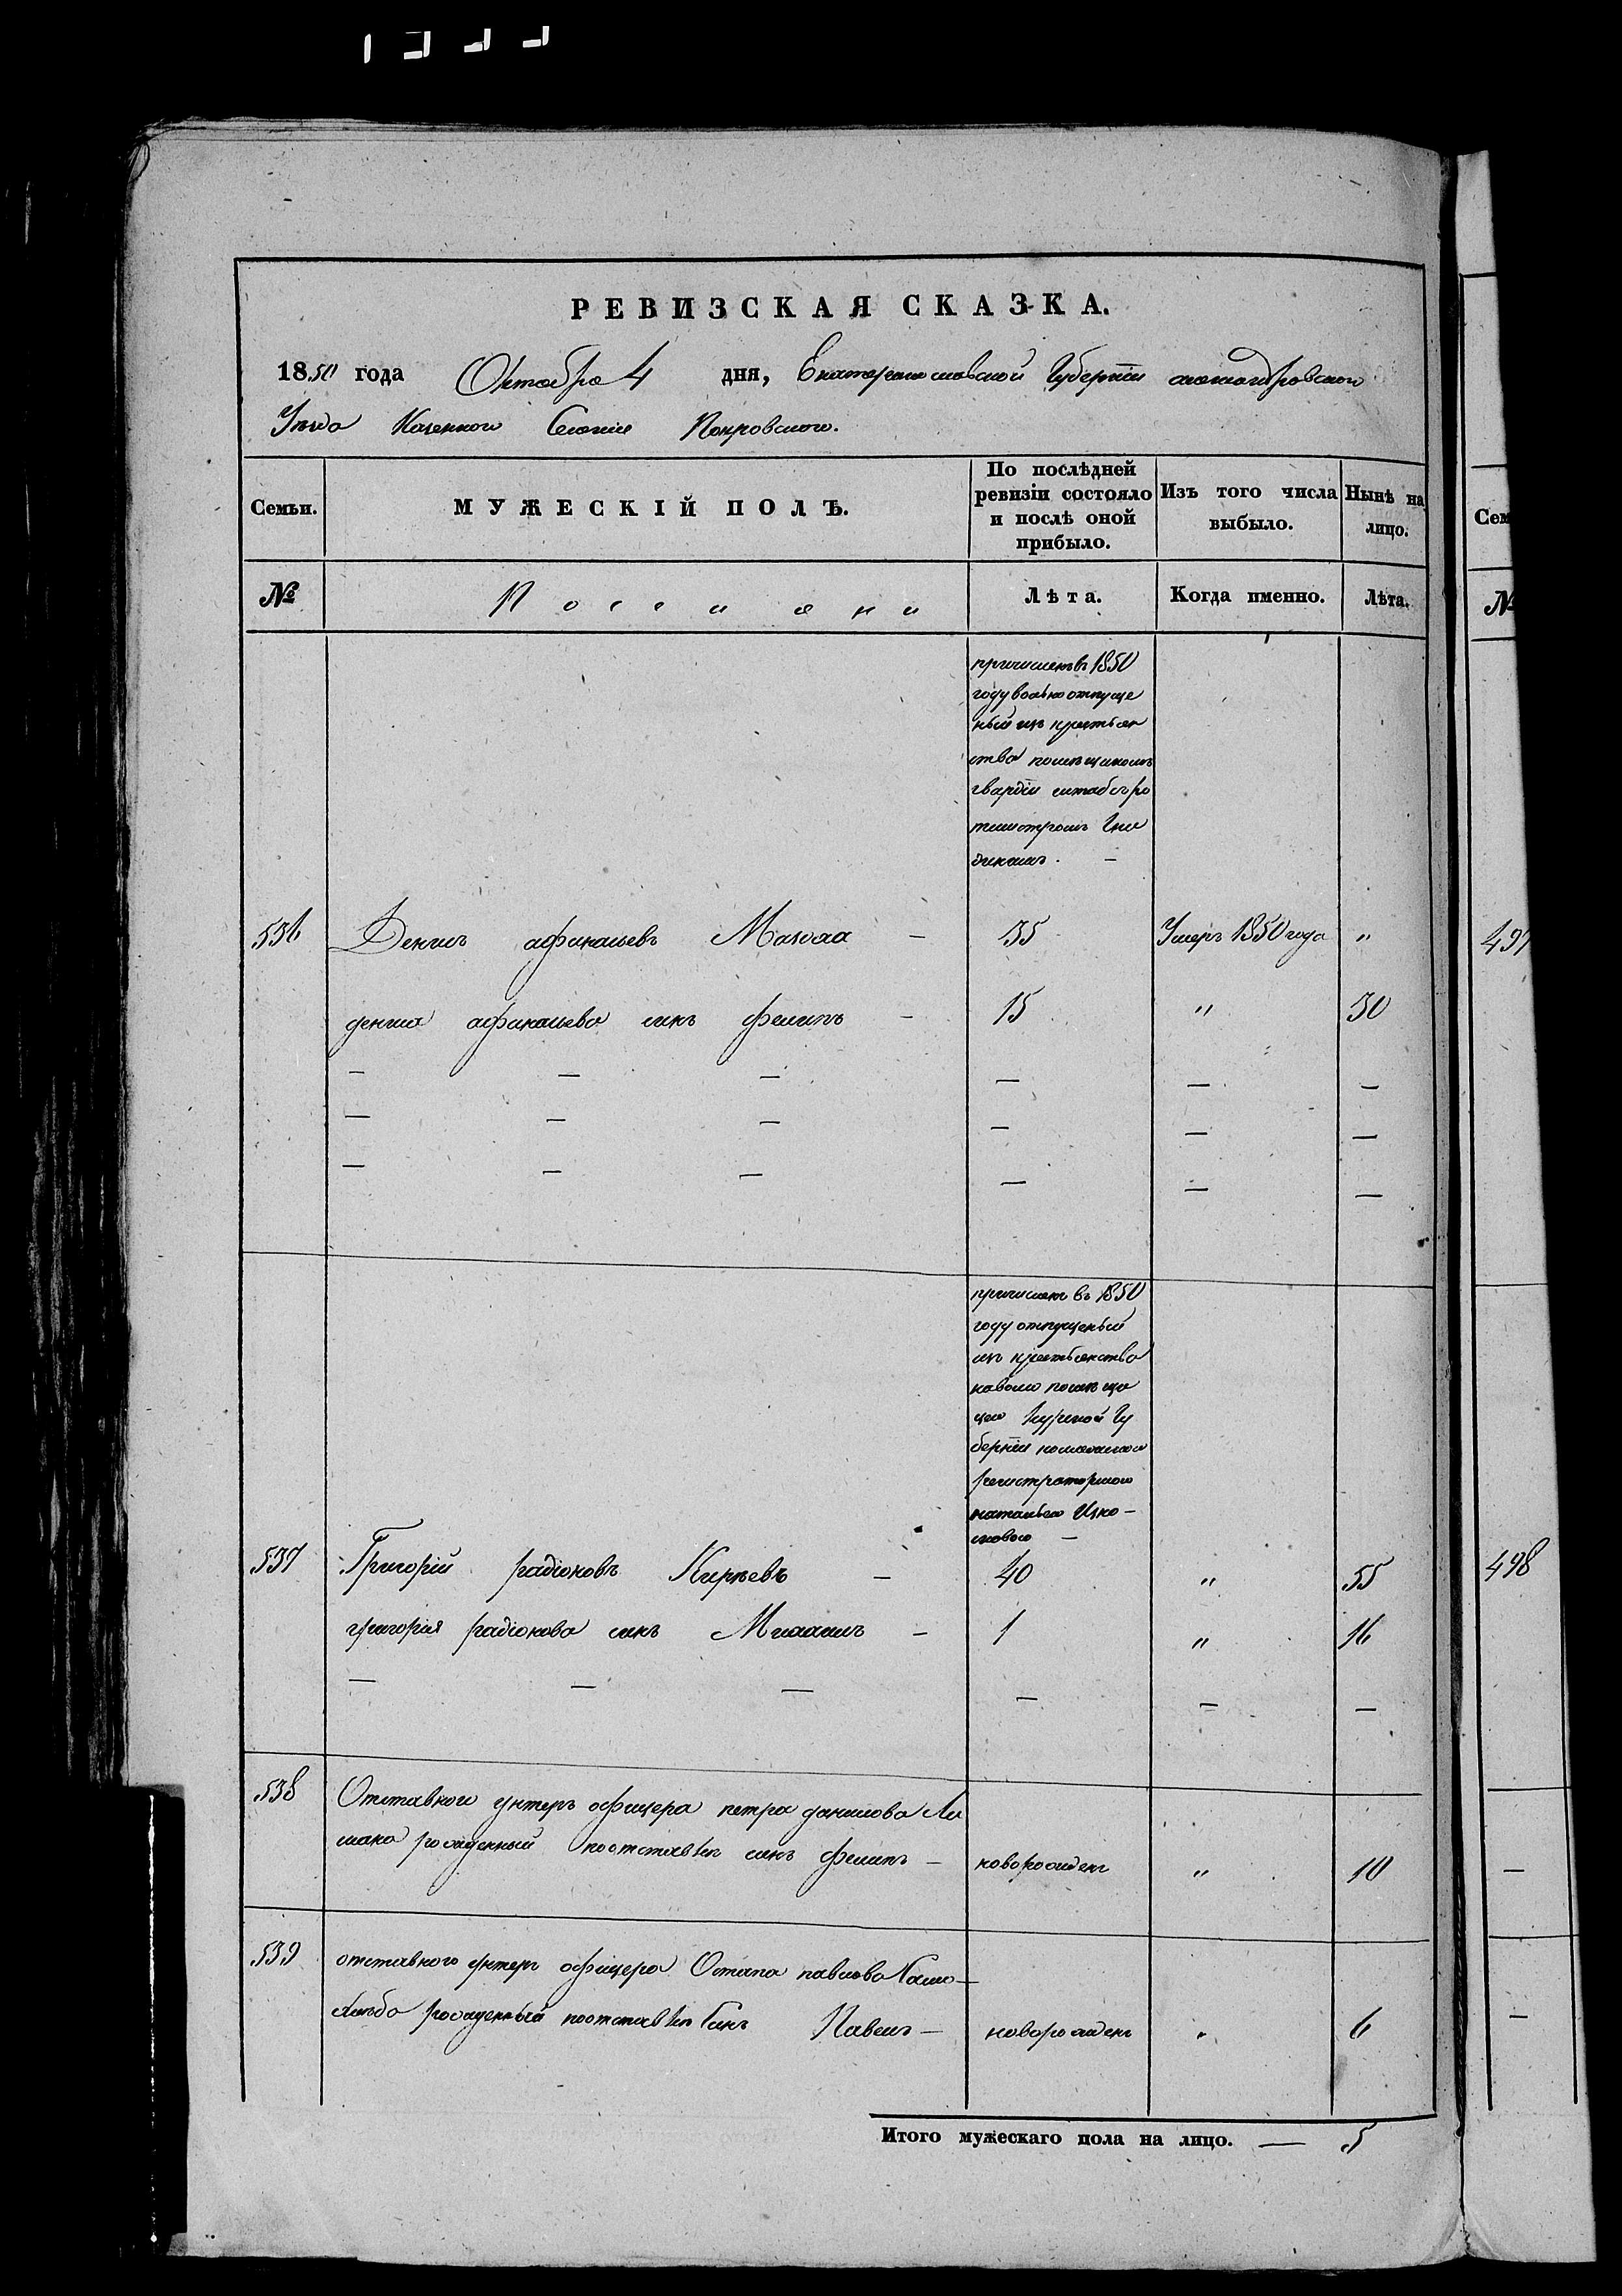 РЕВИЗСКАЯ СКАЗКА.
1850 года Октября 4 дня, Екатеринославской Губернии александровского
Уезда Казенного Селения Покровского.
Семьи.
МУЖЕСКІЙ ПОЛЪ.
По послѣдней
ревизіи состояло
и послѣ оной
прибыло.
Изъ того числа
выбыло.
Нынѣ на
лицо.
Сем
№
Поселяни
Лѣта.
Когда именно.
Лѣта.
№
причисленъ въ 1850
году вольно отпуще
ный изъ крестьян
ства помещикомъ
гвардіи штабсъ ро
тмистромъ
536 Денисъ афанасьевъ — 35 Умеръ 1850 года "
497
дениса афанасьева синъ филипъ — 15 " 30
— — — — — —
— — — — — —
— — — — — —
причисленъ въ 1850
году отпущеный
изъ крестьянства
наволю помещи
цею Курской Гу
берніи колежской
регистраторшою
натальею
—
537 Григорій радіоновъ Киреевъ — 40 " 55
498
григорія радіонова синъ Михаилъ — 1 " 16
— — — — — —
538 Отставного унтеръ офицера петра данилова Ли
мана рожденный поотставке синъ филипъ — новорожденъ " 10
—
539 отставного унтеръ офицера Остапа павлова Само
хлѣба рожденный поотставке Синъ Павелъ — новорожденъ " 6
—
Итого мужескаго пола на лицо. — 5